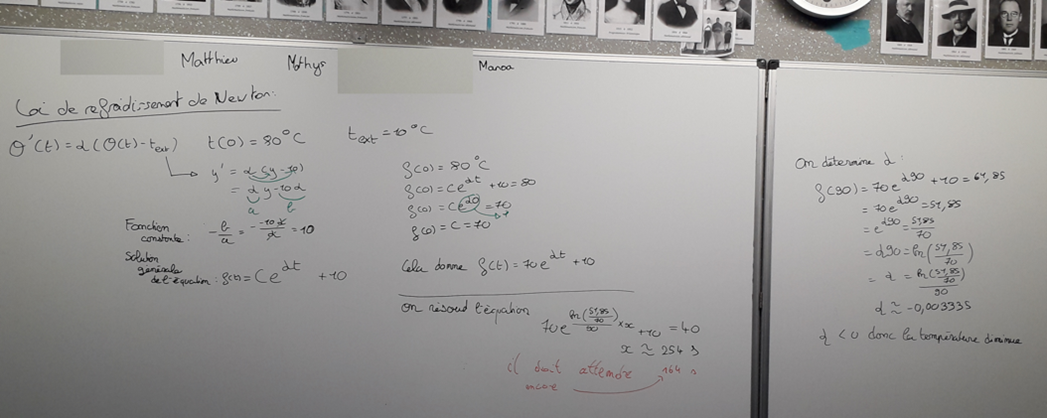 Matthieu Mathys Manoa
Loi de refroidissement de Newton:
θ'(t) = α(θ(t) - t_ext) t(0) = 80°C t_ext = 10°C
y' = α(y-10)
= αy - 10α
a b
Fonction constante: -b/a = -(-10α)/α = 10
Solution générale de l'équation: f(t) = Ce^{αt} + 10
f(0) = 80°C
f(0) = Ce^{αt} + 10 = 80
f(0) = Ce^{α0} = 70
f(0) = C = 70
Cela donne f(t) = 70e^{αt} + 10
On résoud l'équation
70e^{ln(51,85/70)/90 × x} + 10 = 40
x ≈ 254 s
il doit attendre 164 s
encore
On détermine α:
f(90) = 70e^{α90} + 10 = 61,85
= 70e^{α90} = 51,85
= e^{α90} = 51,85/70
= α90 = ln(51,85/70)
= α = ln(51,85/70)/90
α ≈ -0,003335
α < 0 donc la température diminue